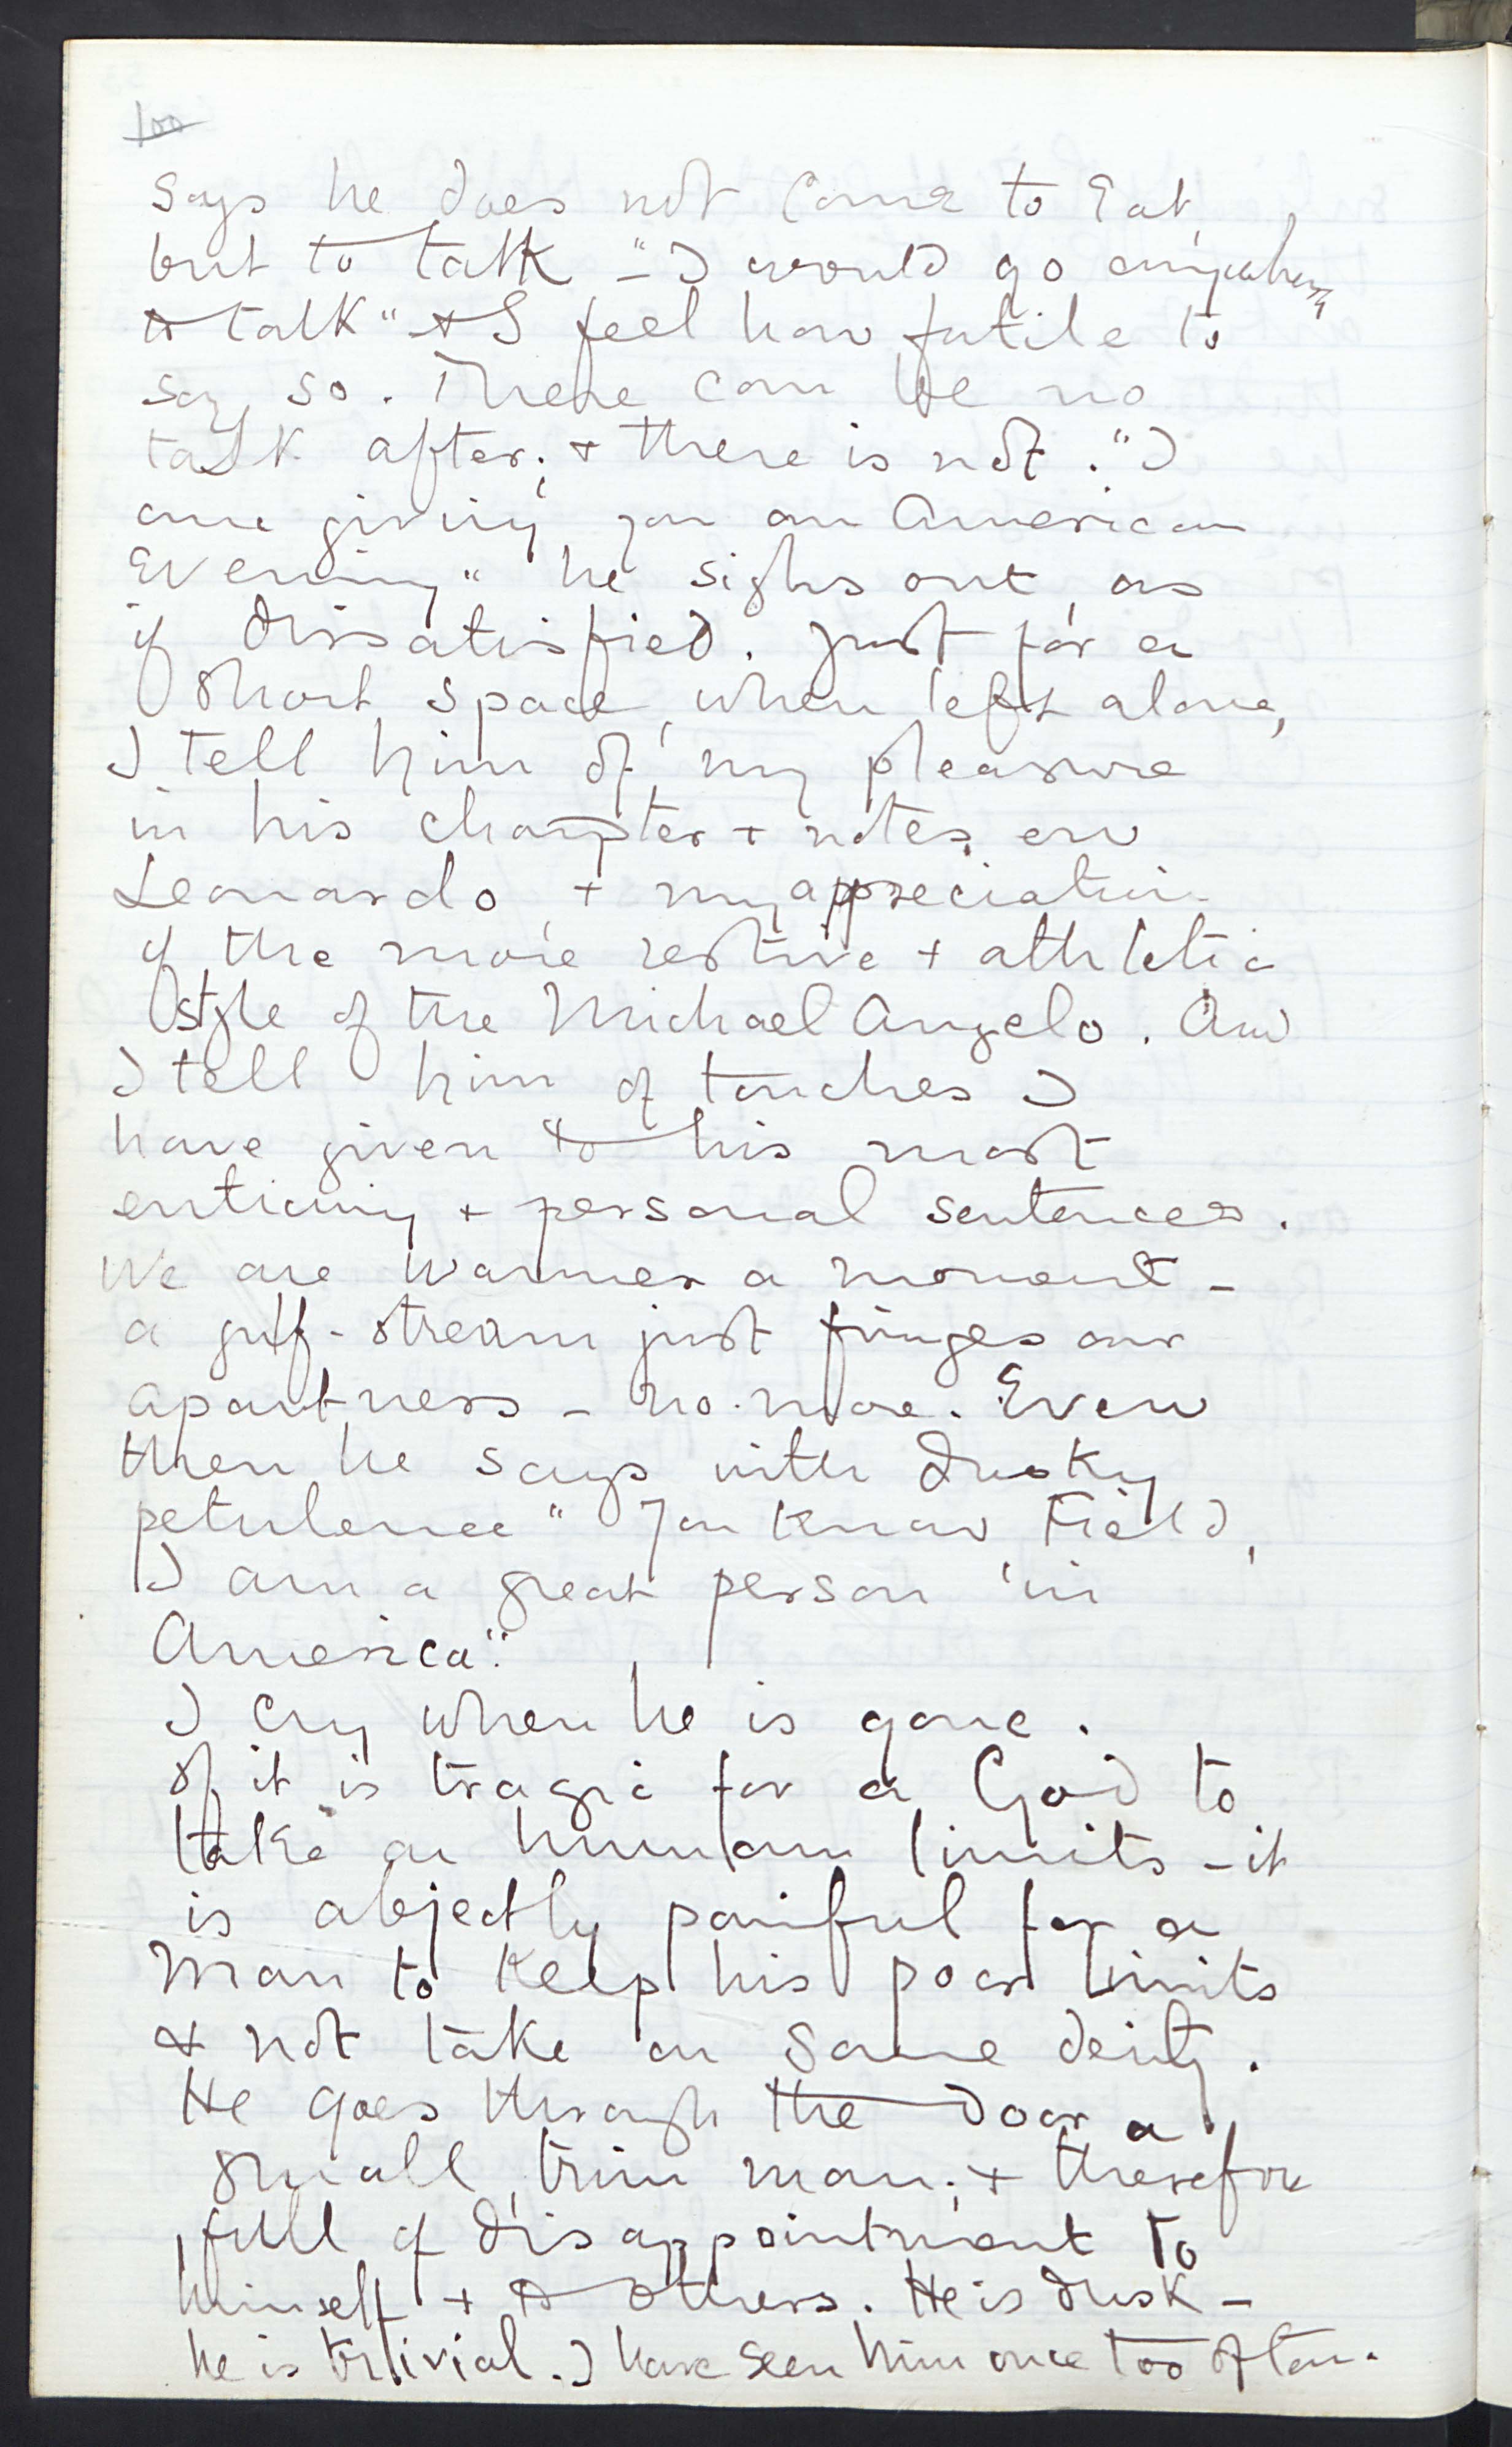 100
says he does not come to eat,
but to talk – "I would go anywhere
to talk" + I feel how futile to
say so. There can be no
talk after; + there is not. "I
am giving you an American
Evening" he sighs out, as
if dissatisfied. Just for a
short space, when left alone,
I tell him of my pleasure
in his chapter + notes on
Leonardo, + my appreciation
of the more restive + athletic
style of the Michael Angelo. And
I tell him of touches I
have given to his most
enticing + personal sentences.
We are warmer a moment –
a gulf-stream just fringes our
apartness – no more. Even
then he says with dusky
petulence "You know, Field,
I am a great person in
America".
I cry when he is gone.
If it is tragic for a God to
take on human limits – it
is abjectly painful for a
man to keep his poor limits
& not take on some deity.
He goes through the door a
small, trim man; + therefore
full of disappointment to
himself + to others. He is dusk –
he is trivial. I have seen him once too often.